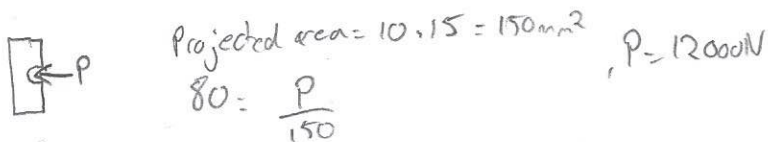 Projected area = 10 . 15 = 150mm²
P
80 = P/150 , P = 12000N